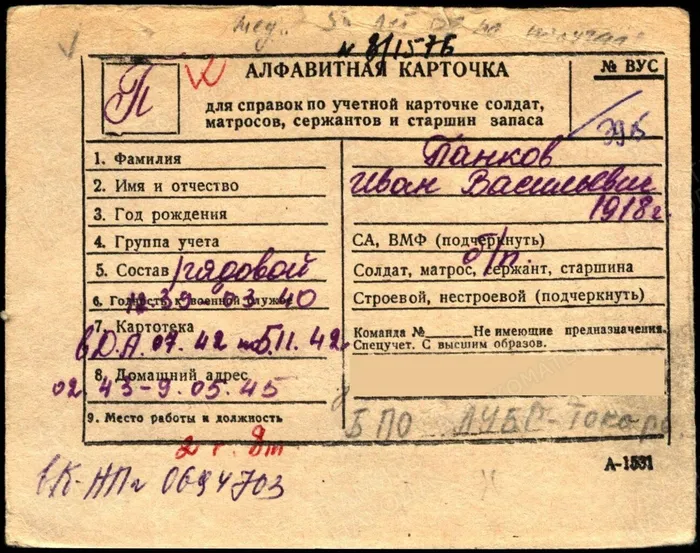 № 8/1576
П
АЛФАВИТНАЯ КАРТОЧКА
для справок по учетной карточке солдат,
матросов, сержантов и старшин запаса
№ ВУС
1. Фамилия
Панков
2. Имя и отчество
Иван Васильевич
3. Год рождения
1918 г.
4. Группа учета
СА, ВМФ (подчеркнуть)
5. Состав рядовой
Солдат, матрос, сержант, старшина
6. Годность к военной службе
12.39 03.40
Строевой, нестроевой (подчеркнуть)
7. Картотека
в Д.А. 07.42 11.42
Команда №_____Не имеющие предназначения.
Спецучет. С высшим образов.
8. Домашний адрес
02.43-9.05.45
9. Место работы и должность
БПО
А-1531
0694703